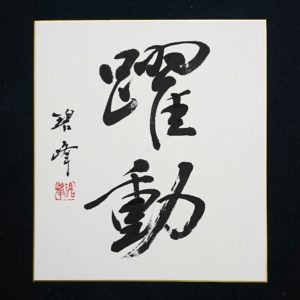 躍動
碧峰